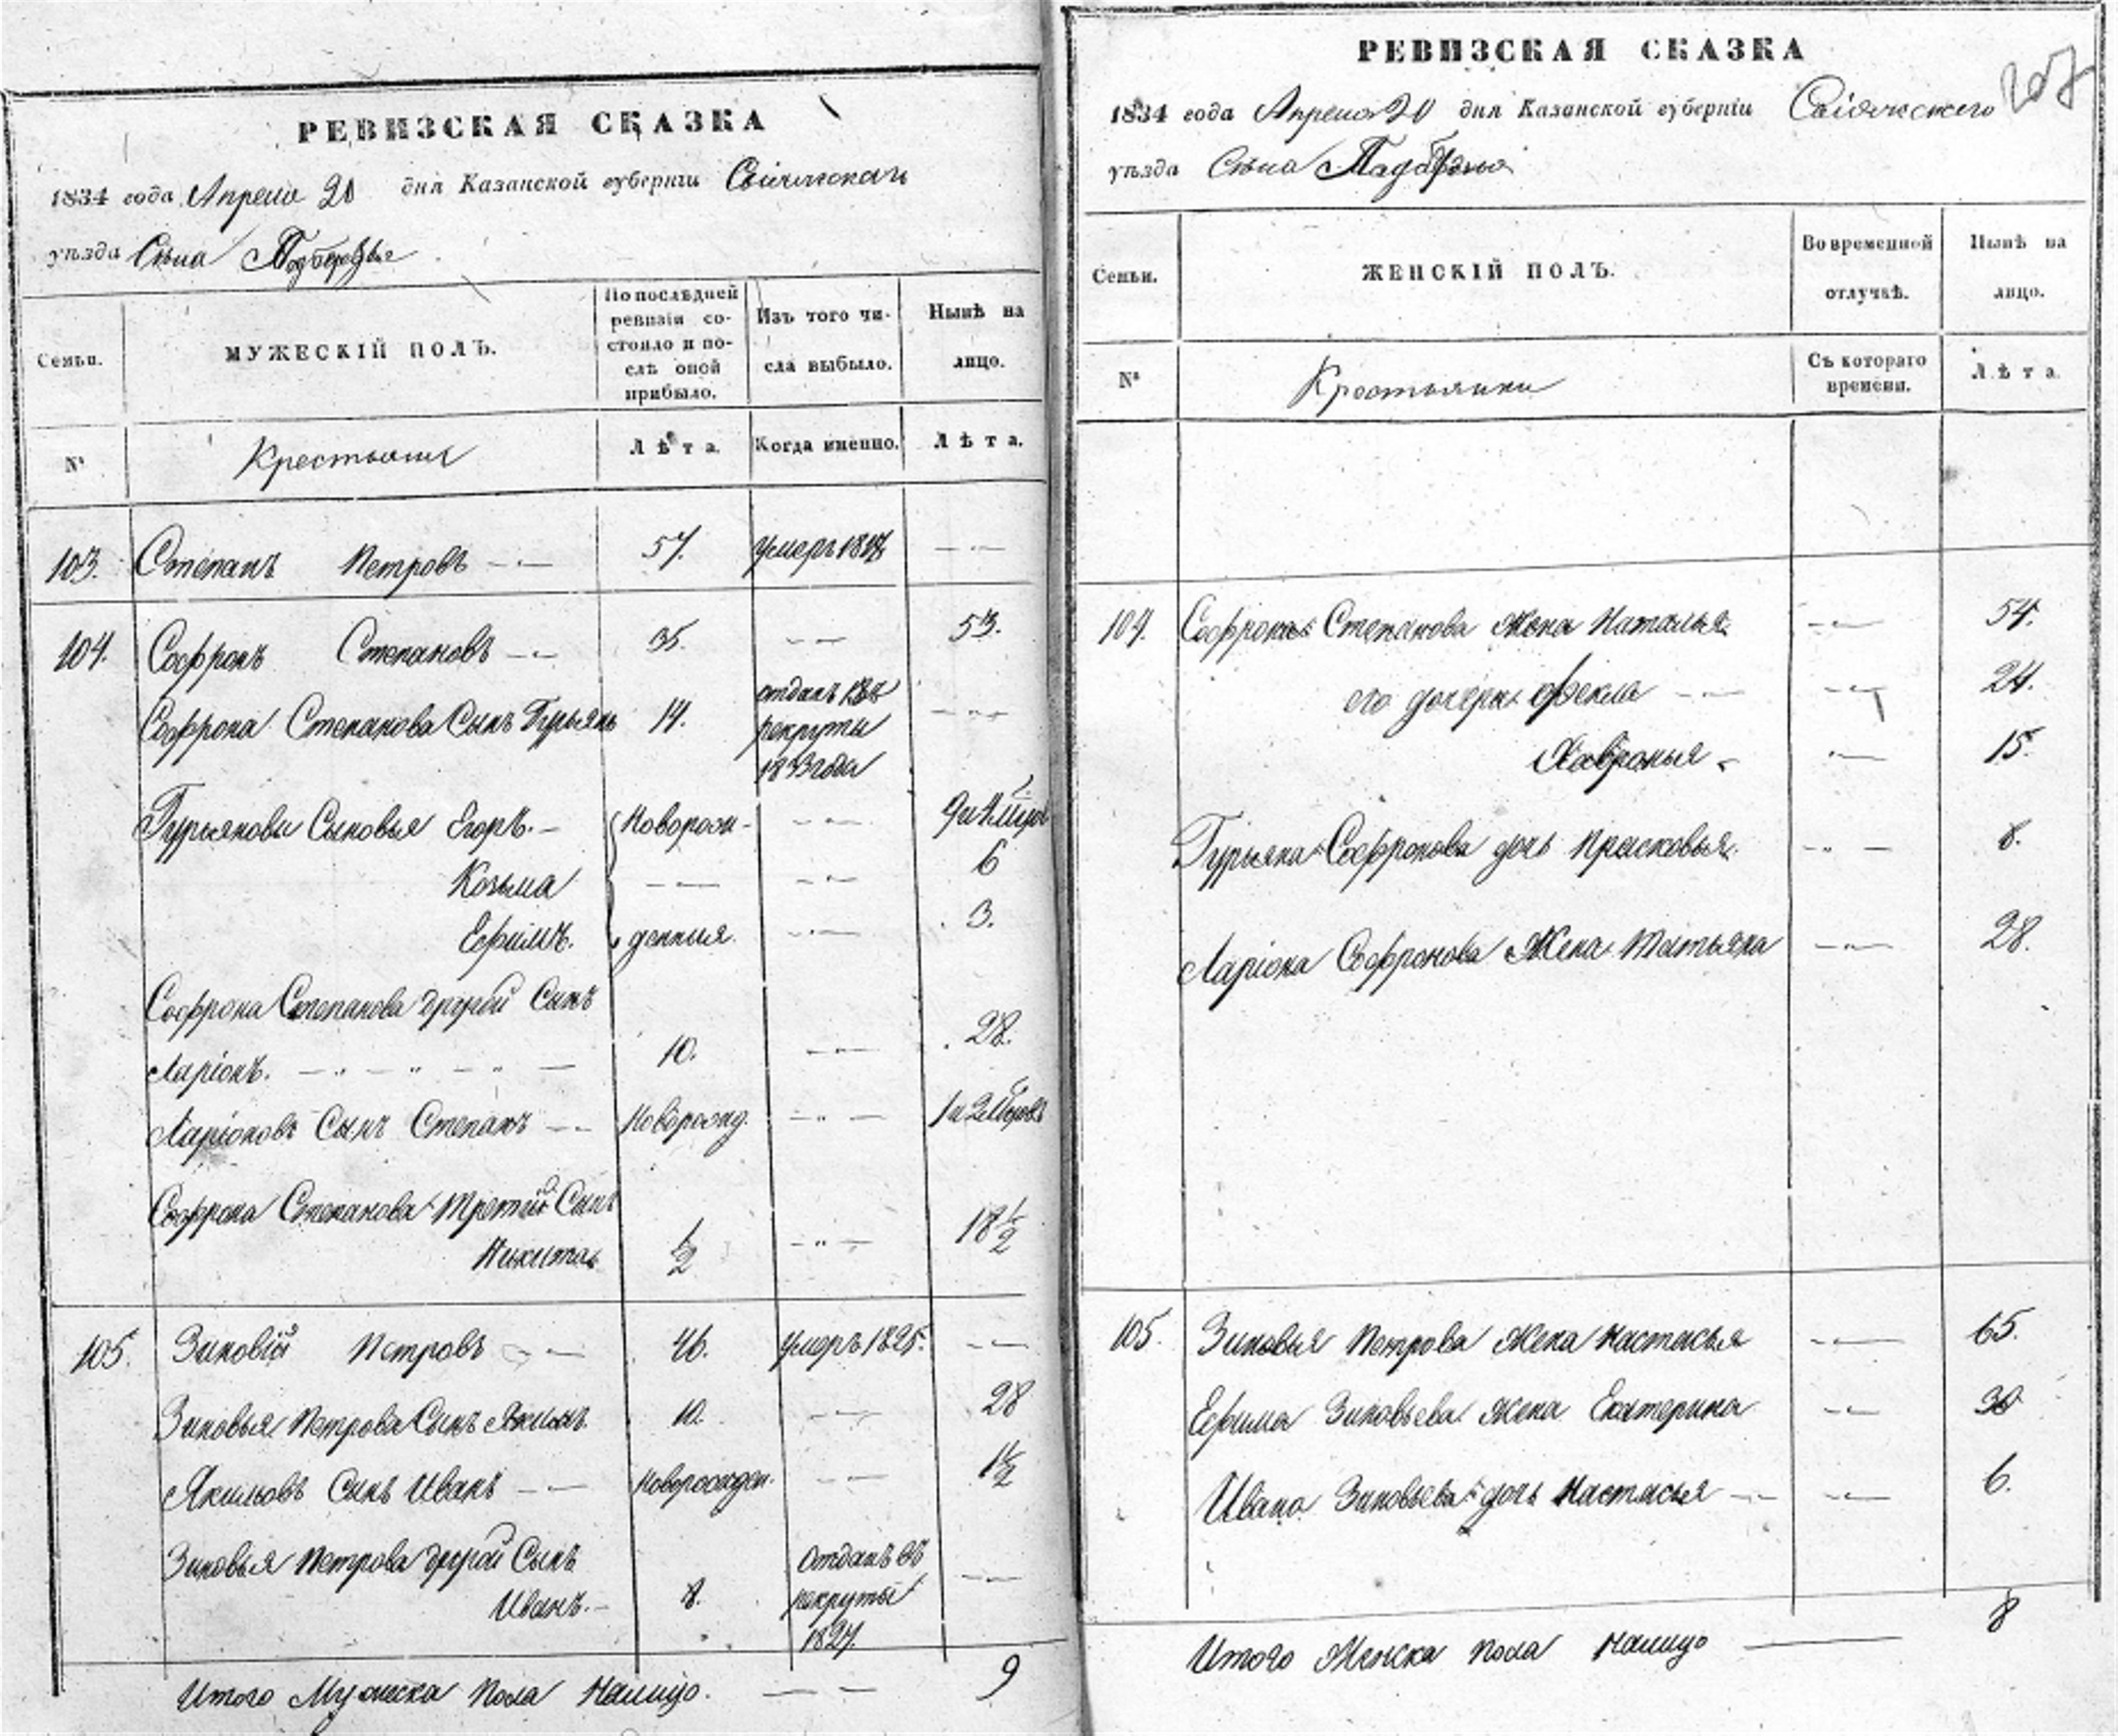 РЕВИЗСКАЯ СКАЗКА
1834 года Апреля 20 дня Казанской губерніи
уѣзда Села Подберезья
Семьи.
МУЖЕСКІЙ ПОЛЪ.
По послѣдней
ревизіи со-
стояло и по-
слѣ оной
прибыло.
Изъ того чи-
сла выбыло.
Нынѣ на
лицо.
№
Крестьяне
Лѣта.
Когда именно.
Лѣта.
103. Степанъ Петровъ 57. умеръ
104. Софронъ Степановъ 35. 53.
Софрона Степанова Сынъ Гурьянъ 14.
отданъ
рекруты
1833 года
Гурьяновы Сыновья Егоръ. Новорож-
Козьма 6
Ефимъ. денныя. 3.
Софрона Степанова другой Сынъ
Ларіонъ. 10. 28.
Ларіоновъ Сынъ Степанъ Новорожд.
Софрона Степанова третій Сынъ
Никита 1/2 18 1/2
105. Зиновій Петровъ 46. умеръ 1825.
Зиновья Петрова Сынъ 10. 28
Сынъ Иванъ Новорожден. 1 1/2
Зиновья Петрова другой Сынъ
Иванъ. 8.
Отданъ въ
рекруты
1827.
Итого Мужеска пола налицо. 9
207
РЕВИЗСКАЯ СКАЗКА
1834 года Апреля 20 дня Казанской губерніи Свіяжского
уѣзда Села
Семьи.
ЖЕНСКІЙ ПОЛЪ.
Во временной
отлучкѣ.
Нынѣ на
лицо.
№
Крестьянки
Съ котораго
времени.
Лѣта.
104. Софрона Степанова Жена Наталья 54.
его дочери Фекла 24.
Хавронья 15.
Гурьяна Софронова дочь Прасковья. 8.
Ларіона Софронова Жена Татьяна 28.
105. Зиновья Петрова Жена Настасья 65.
Ефима Зиновьева жена Екатерина 30
Ивана Зиновьева дочь Настасья 6.
Итого Женска пола налицо 8